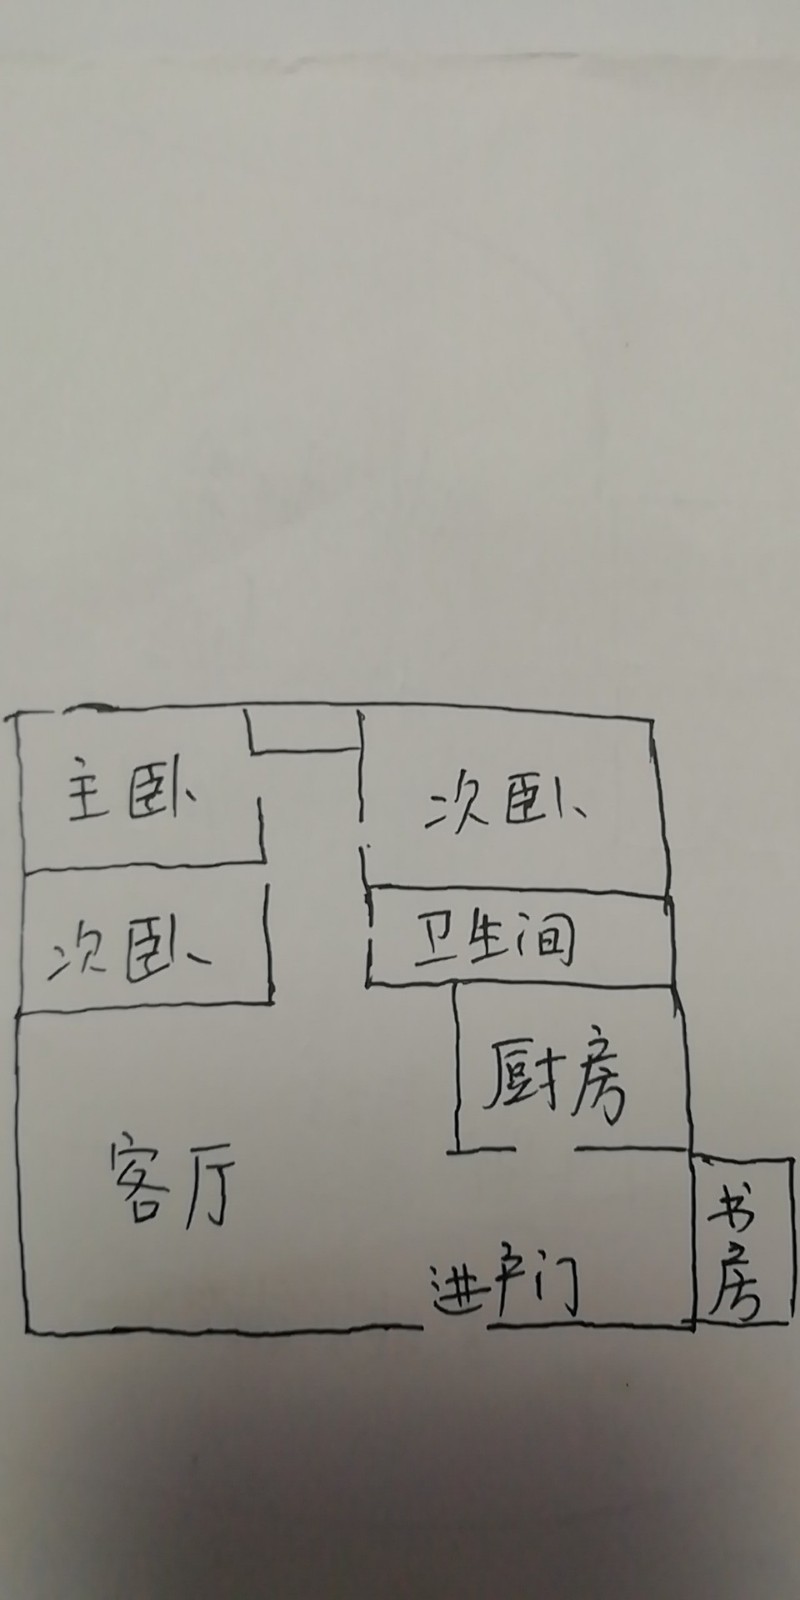 主卧
次卧
次卧
卫生间
厨房
客厅
书房
进户门